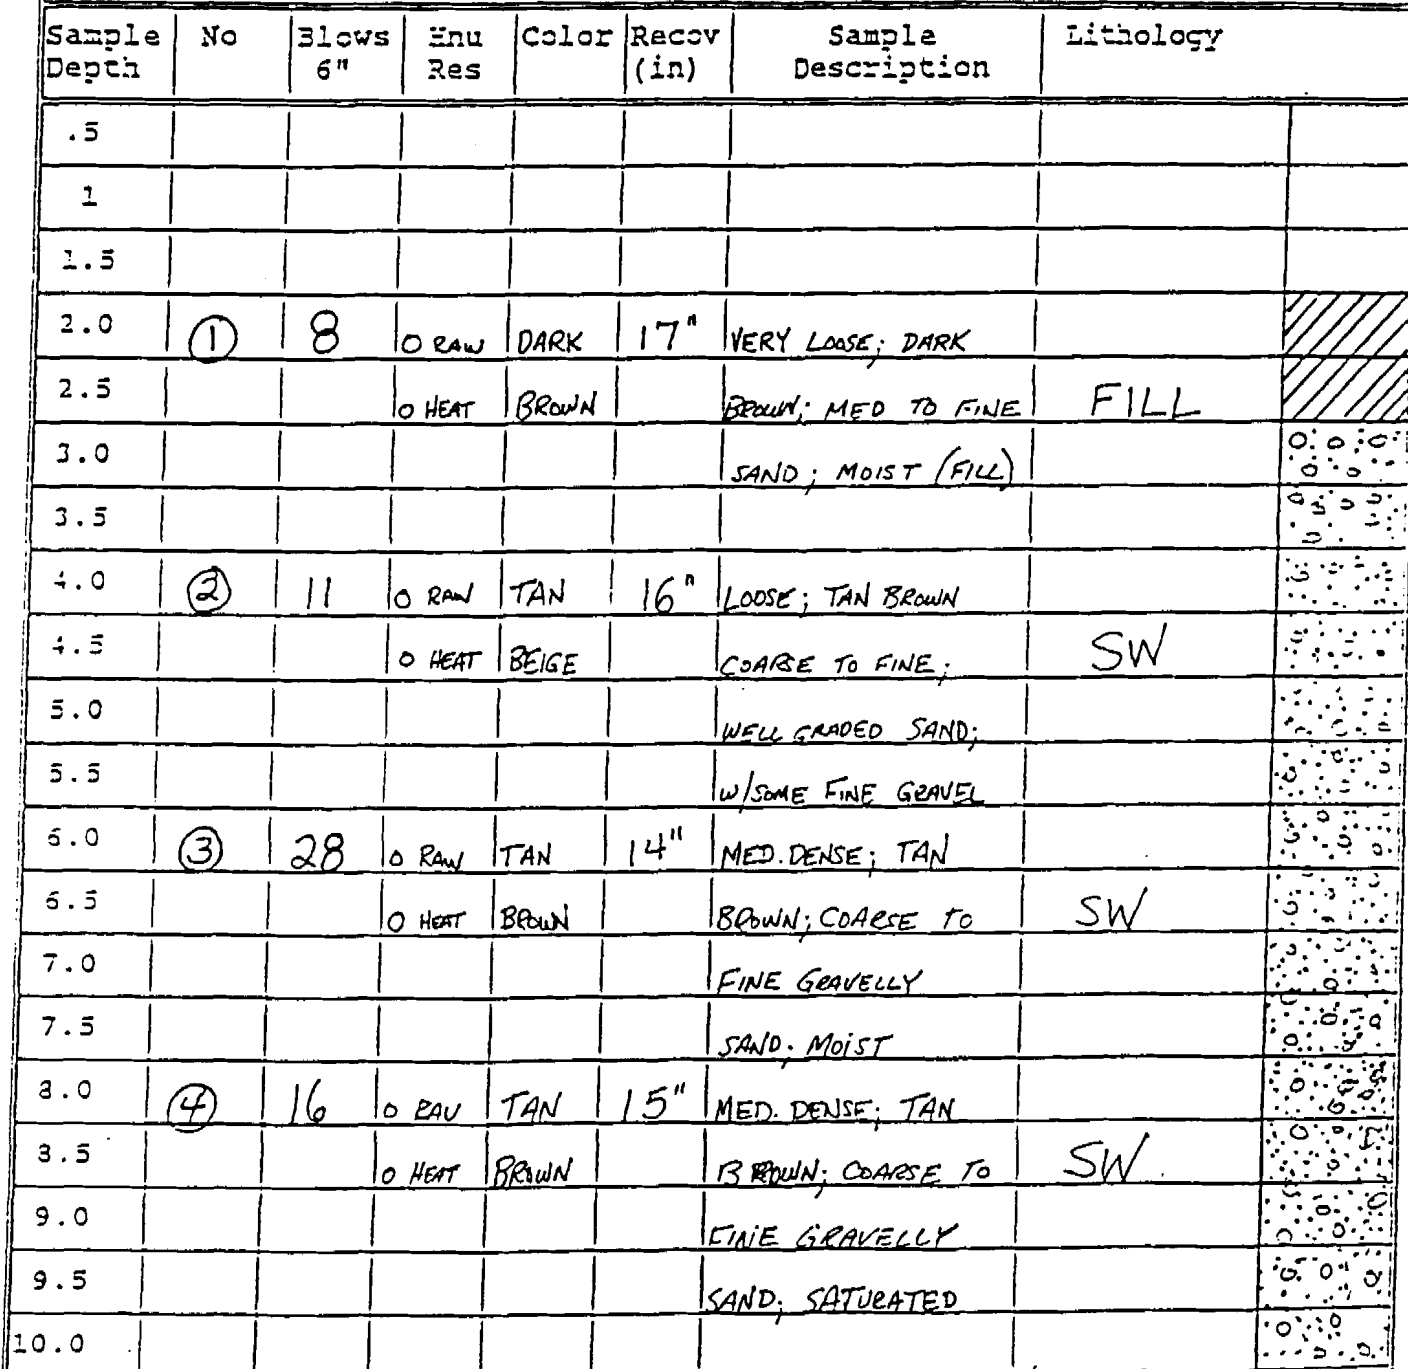 Sample No Blows Hnu Color Recov Sample Lithology
Depth 6" Res (in) Description
.5
1
1.5
2.0 ① 8 0 RAW DARK 17" VERY LOOSE; DARK
2.5 0 HEAT BROWN BROWN; MED TO FINE FILL
3.0 SAND; MOIST (FILL)
3.5
4.0 ② 11 0 RAW TAN 16" LOOSE; TAN BROWN
4.5 0 HEAT BEIGE COARSE TO FINE; SW
5.0 WELL GRADED SAND;
5.5 W/SOME FINE GRAVEL
6.0 ③ 28 0 RAW TAN 14" MED. DENSE; TAN
6.5 0 HEAT BROWN BROWN; COARSE TO SW
7.0 FINE GRAVELLY
7.5 SAND; MOIST
8.0 ④ 16 0 RAW TAN 15" MED. DENSE; TAN
8.5 0 HEAT BROWN BROWN; COARSE TO SW
9.0 FINE GRAVELLY
9.5 SAND; SATURATED
10.0